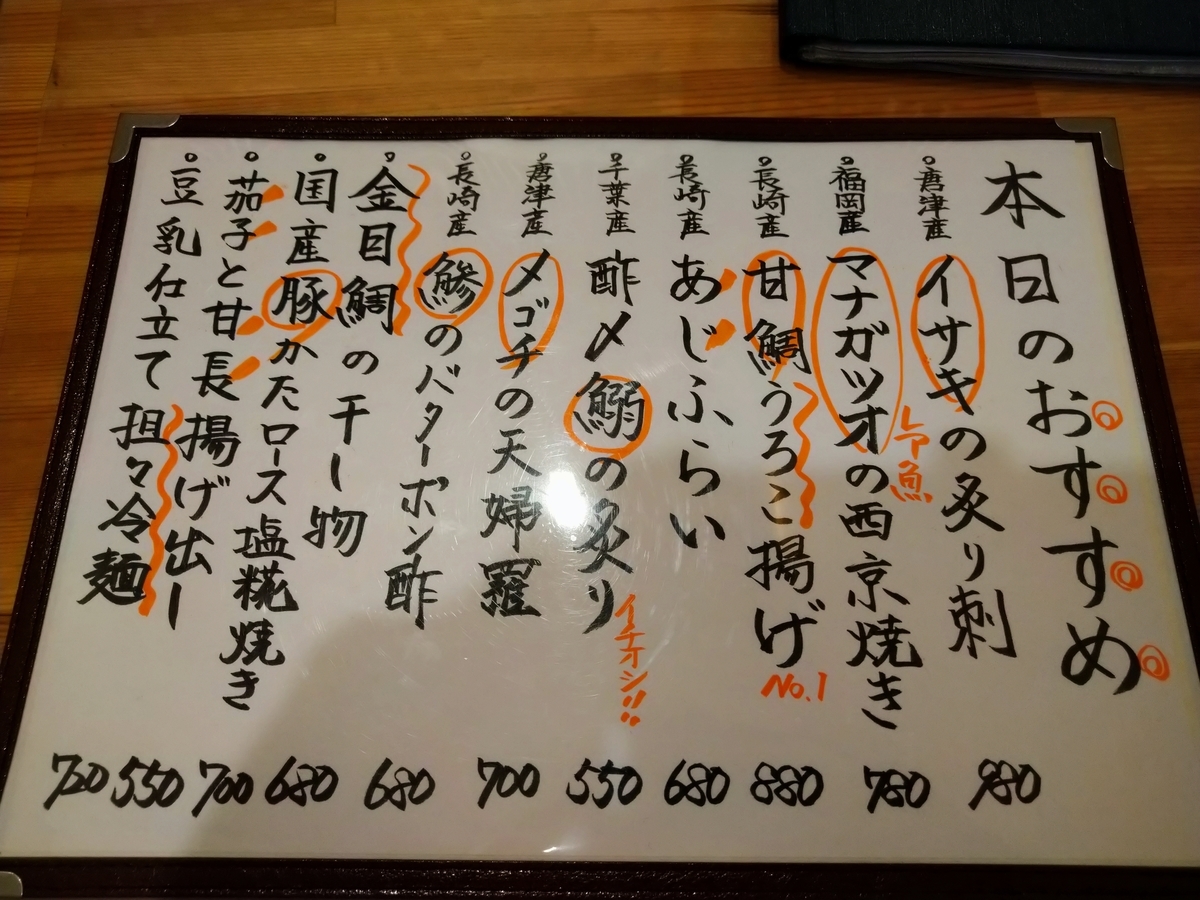 本日のおすすめ
唐津産 イサキの炙り刺 980
福岡産 マナガツオの西京焼き 780
レア魚
長崎産 甘鯛うろこ揚げ 880
No.1
長崎産 あじふらい 680
千葉産 酢〆鰯の炙り 550
イチオシ!!
唐津産 メゴチの天婦羅 700
長崎産 鯵のバターポン酢 680
金目鯛の干し物 680
国産豚かたロース塩糀焼き 700
茄子と甘長揚げ出し 550
豆乳仕立て担々冷麺 720